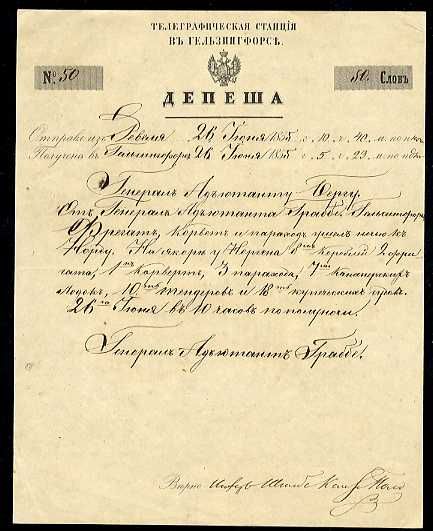 ТЕЛЕГРАФИЧЕСКАЯ СТАНЦІЯ
ВЪ ГЕЛЬЗИНГФОРСѢ.
№. 50
50. Словъ
ДЕПЕША
Отправ. изъ Ревеля 26 Іюня 1855 г. 10 ч. 40 м. по
Получена въ Гельсингфорсъ 26 Іюня 1855 г. 5 ч. 23 м. по
Генералъ Адъютанту Бергу.
Отъ Генералъ Адъютанта Граббе. Гельсингфорсъ
Фрегатъ, Корветъ и пароходъ ушли ночью къ
Норду. На якоръ у Наргена 8 Кораблей 2 фре
гата, 1 Корветъ, 3 парохода, Канонерскихъ
Лодокъ, 10 тендеровъ и 18 купеческихъ
26 Іюня въ 10 часовъ по полуночи.
Генералъ Адъютантъ Граббе.
Вѣрно